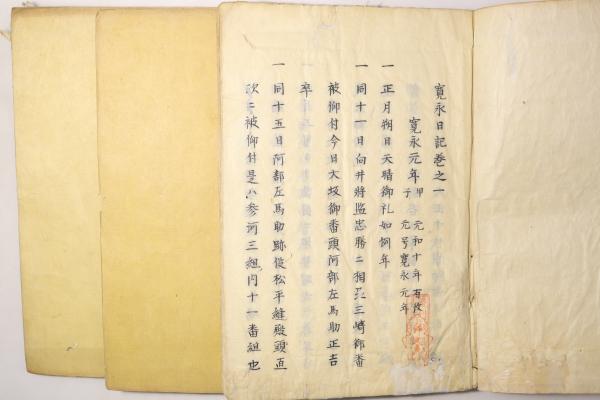 寛永日記巻之一
寛永元年甲子 元和十年百改元号寛永元年
一正月朔日天晴御礼如例年
一同十一日向井將監忠勝ニ相三崎御番
被仰付今日大坂御番頭阿部左馬助正吉
卒
一同十五日阿部左馬助跡役松平縫殿頭直
次ニ被仰付是ハ参河三組内十一番組也